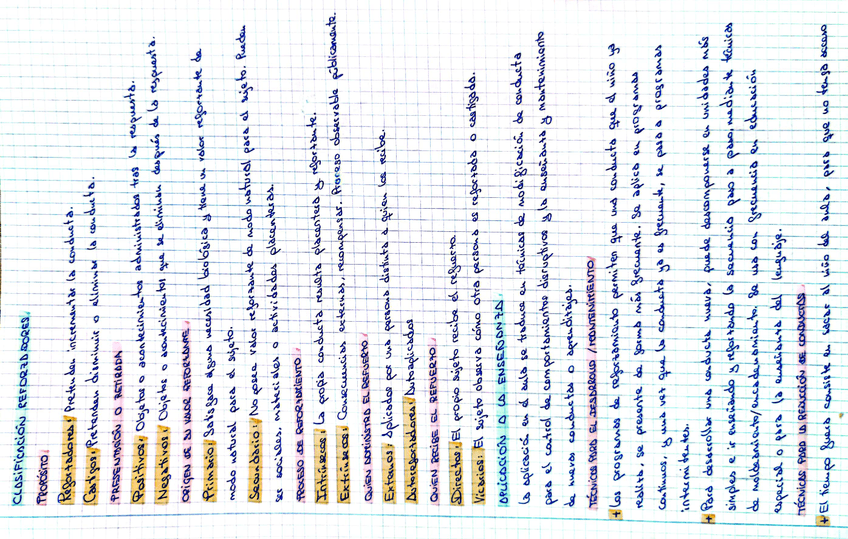 CLASIFICACIÓN REFORZADORES
PROPÓSITO
Reforzadores: Pretenden incrementar la conducta.
Castigos: Pretenden disminuir o eliminar la conducta.
PRESENTACIÓN O RETIRADA
Positivos: Objetos o acontecimientos administrados tras la respuesta.
Negativos: Objetos o acontecimientos que se eliminan después de la respuesta.
ORIGEN DE SU VALOR REFORZANTE
Primario: Satisface alguna necesidad biológica y tiene un valor reforzante de
modo natural para el sujeto.
Secundario: No posee valor reforzante de modo natural para el sujeto. Pueden
ser sociales, materiales o actividades placenteras.
PROCESO DE REFORZAMIENTO
Intrínsecos: La propia conducta resulta placentera y reforzante.
Extrínsecos: Consecuencias externas, recompensas. Proceso observable públicamente.
QUIEN ADMINISTRA EL REFUERZO
Externos: Aplicados por una persona distinta a quien los recibe.
Autoreforzadores: Autoaplicados
QUIEN RECIBE EL REFUERZO
Directos: El propio sujeto recibe el refuerzo.
Vicarios: El sujeto observa cómo otra persona es reforzada o castigada.
APLICACIÓN A LA ENSEÑANZA
La aplicación en el aula se traduce en técnicas de modificación de conducta
para el control de comportamientos disruptivos y la enseñanza y mantenimiento
de nuevas conductas o aprendizajes.
TÉCNICAS PARA EL DESARROLLO/MANTENIMIENTO
+ Los programas de reforzamiento permiten que una conducta que el niño ya
realiza, se presente de forma más frecuente. Se aplica en programas
continuos, y una vez que la conducta ya es frecuente, se pasa a programas
intermitentes.
+ Para desarrollar una conducta nueva, puede descomponerse en unidades más
simples e ir enseñando y reforzando la secuencia paso a paso, mediante técnicas
de moldeamiento/encadenamiento. Se usa con frecuencia en educación
especial o para la enseñanza del lenguaje.
TÉCNICAS PARA LA REDUCCIÓN DE CONDUCTAS
+ El tiempo fuera consiste en sacar al niño del aula, para que no tenga acceso